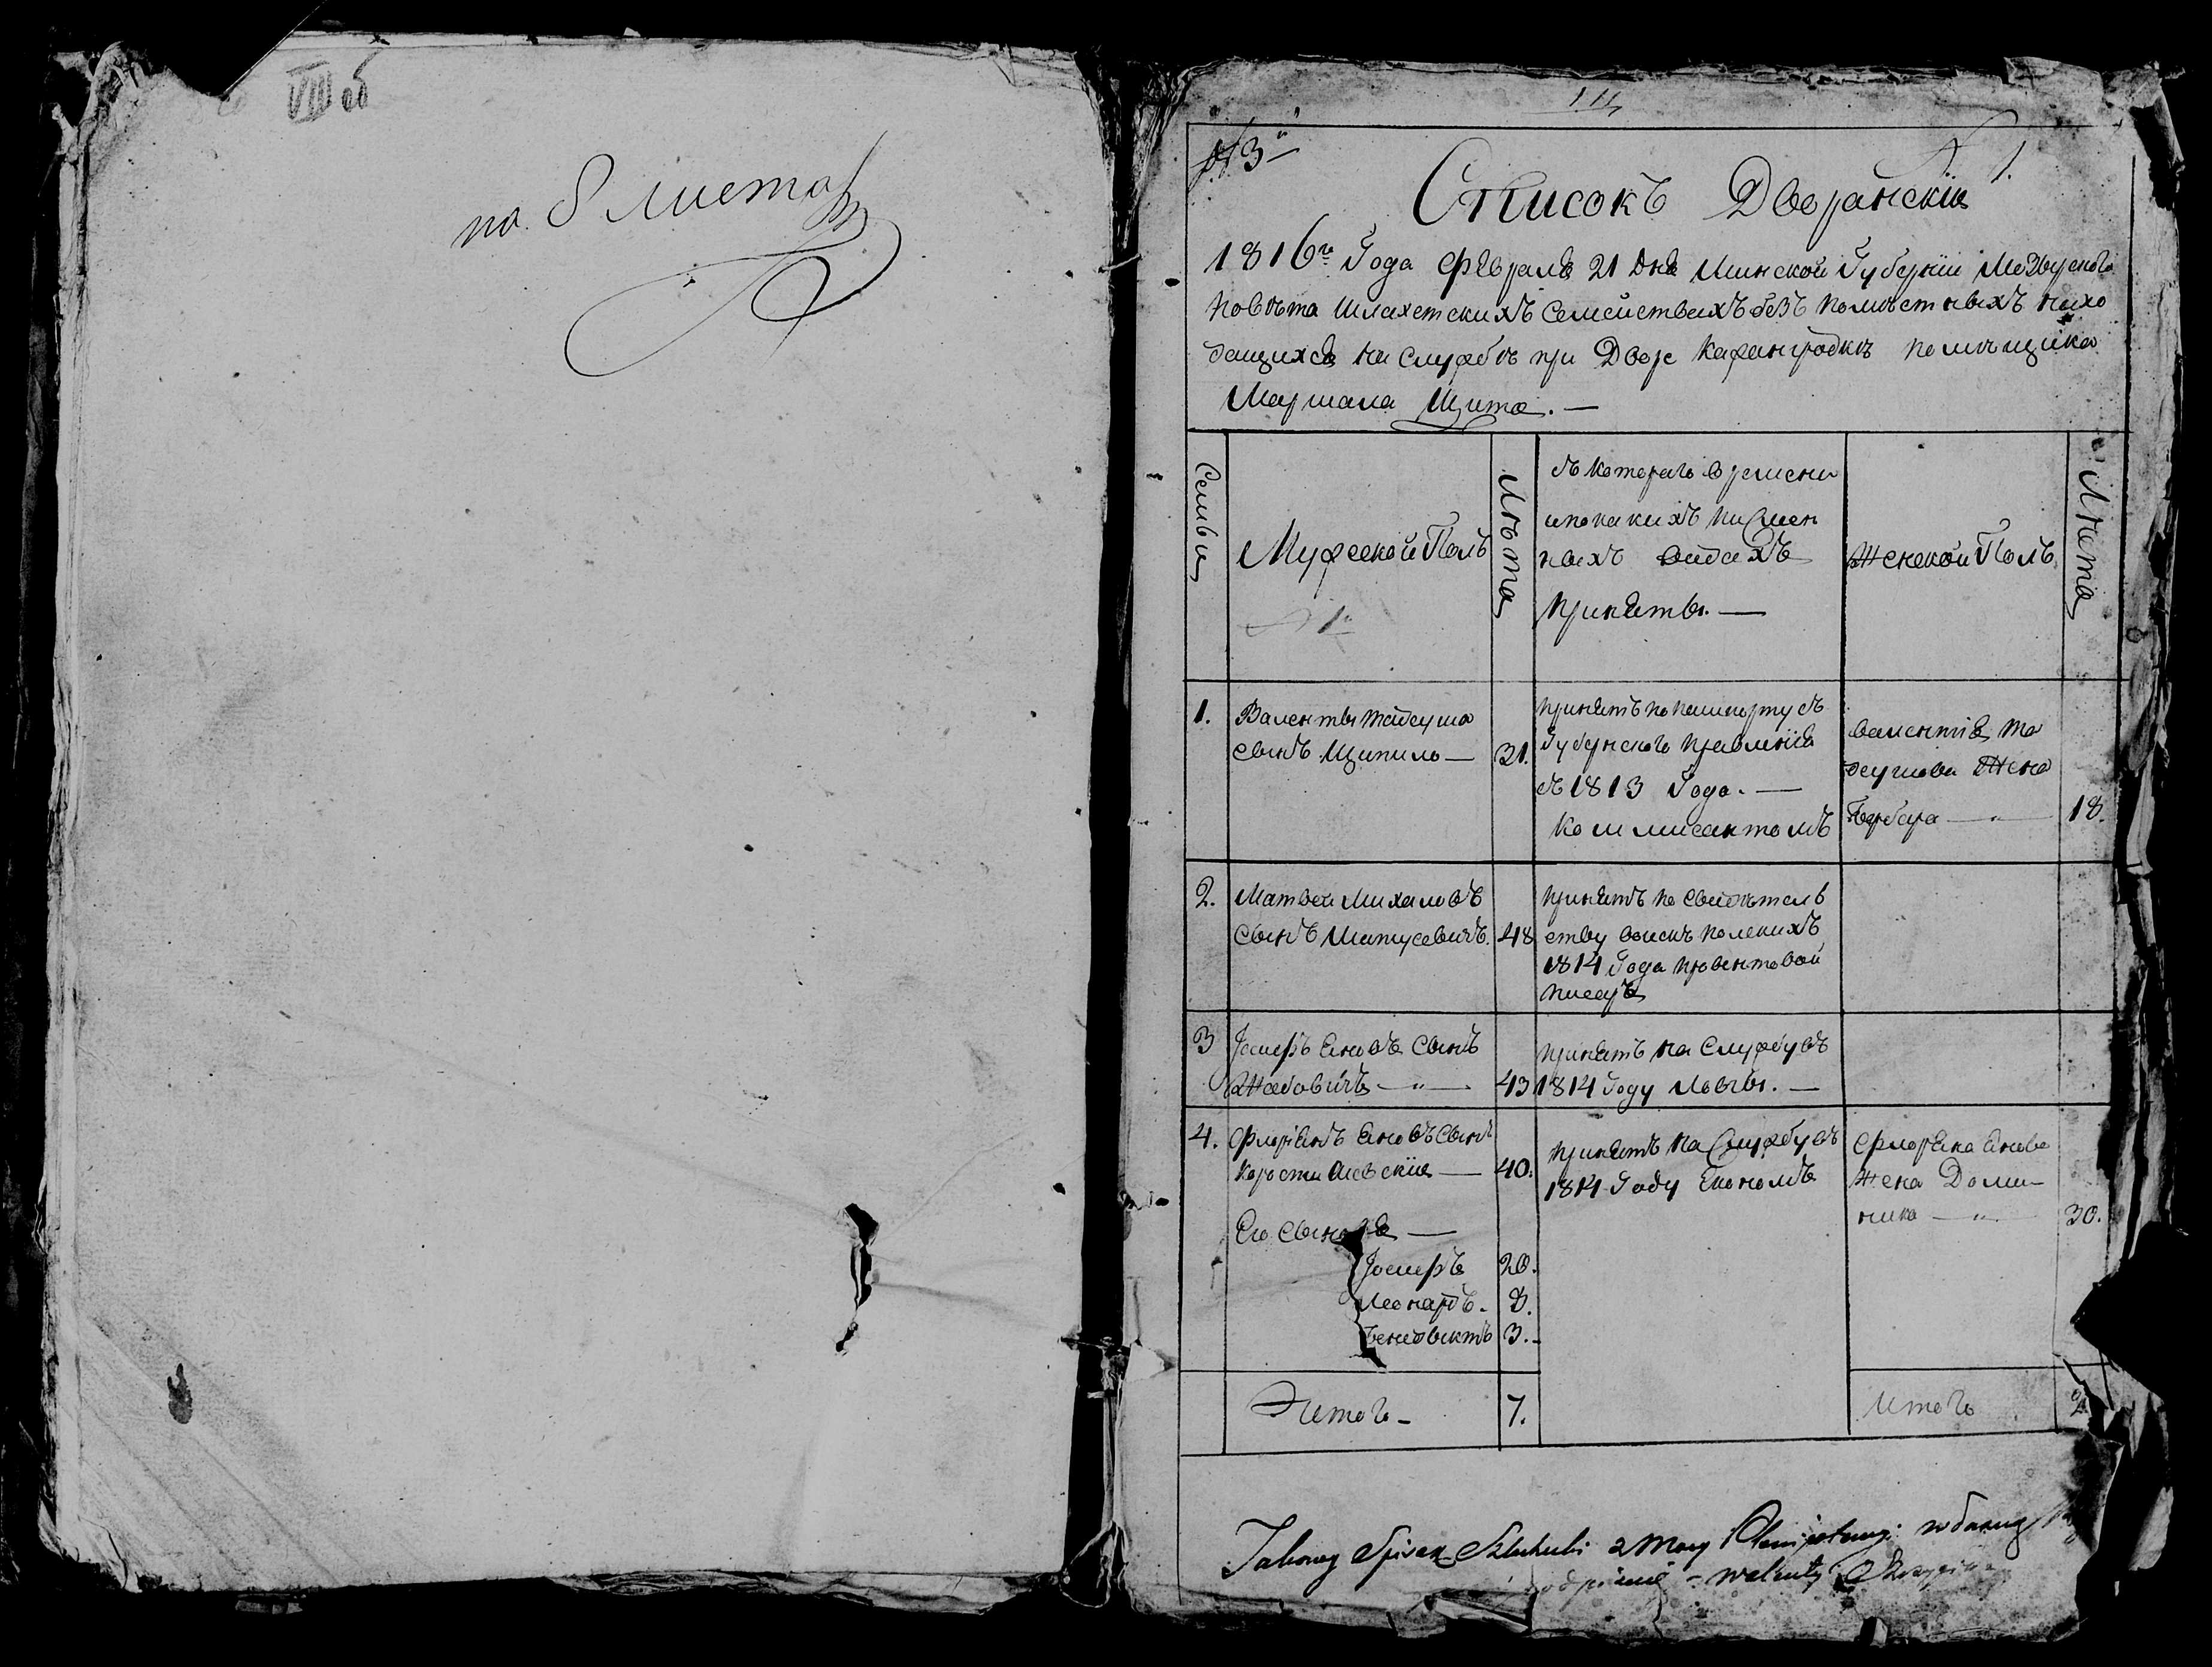 VIII об
на 8 листах
№ 3й
1.
Списокъ Дворянскій
1816го Года Февраля 21 дня Минской Губерніи Мозырского
Повѣта Шляхетскихъ Семействахъ безъ поместныхъ нахо
дящихся на Службѣ при Дворѣ Кажангродкѣ помѣщика
Маршала Щита. —
Семьи
Мужеской Полъ
Лѣта
съ котораго времени
и по какихъ писмен
ныхъ видахъ
приняты. —
Женской Полъ
Лѣта
1.
Валенты Тадеуша
сынъ Щипило —
31.
принятъ по пашпорту съ
Губернского правленія
съ 1813 Года. —
Коммисантомъ
Валентія Та
деушова Жена
Барбара — „ —
18.
2.
Матвей Михаловъ
сынъ Матусевичъ.
48
принятъ по свидѣтель
ству войскъ полскихъ
1814 Года провентовой
писаръ
3
Іосифъ Яновъ Сынъ
Жабовичъ — „ —
43
принятъ на Службу въ
1814 Году Ловчы. —
4.
Флорянъ Яновъ Сынъ
40.
принятъ на Службу въ
1814 Году Економъ
Флоряна Янова
Жена Доми-
ника — „ —
30.
Его Сыновья —
Іосифъ
20.
Леонардъ.
8.
Бенедыктъ
3. -
Итого -
7.
Итого
2.
Takowy Spisek Szlachecki z Mocy
podpisuię = Walenty